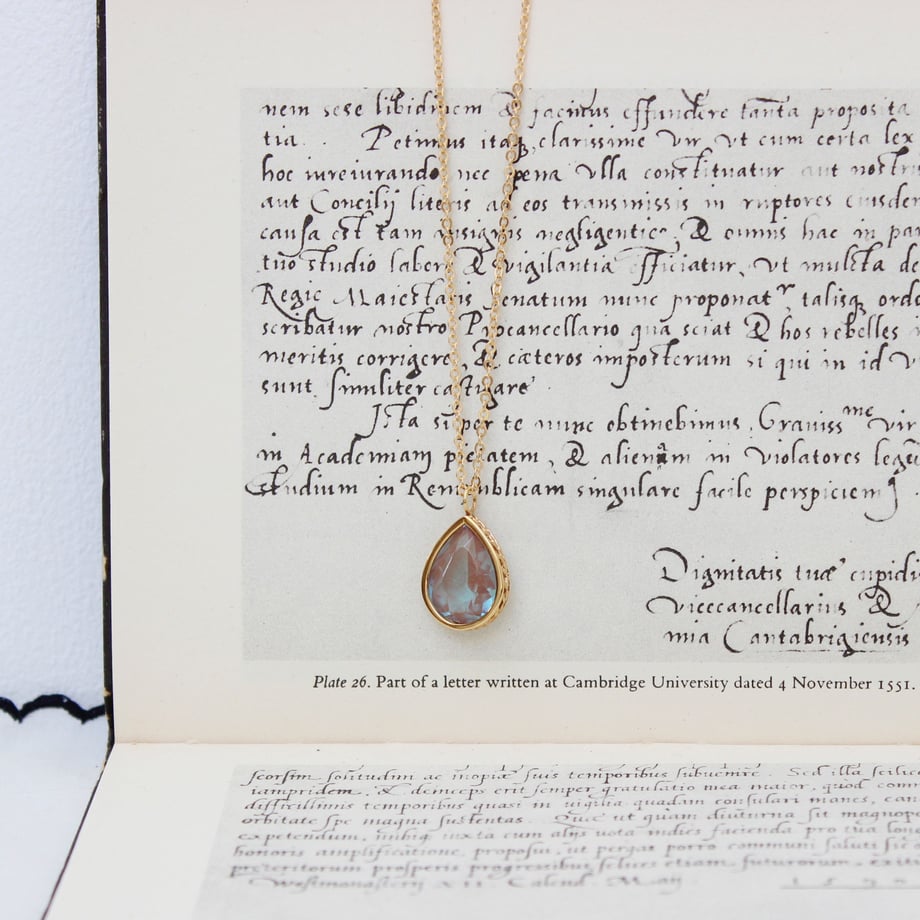 nem sese libidinem & facinus effundere tanta proposita
tia. Petimus itaq clarissime Vir, vt cum certa lex
hoc iureiurando nec pena vlla constituatur aut nostris
aut Concilij literis ad eos transmissis in ruptores eiusdem
causa est tam insignis negligentie, & omnis hac in par
tuo studio labore & vigilantia efficiatur, vt mulcta de
Regie Maiestatis Senatum nunc proponatr talisq
scribatur nostro Procancellario qua sciat & hos rebelles
meritis corrigere, & cæteros imposterum si qui in id
sunt similiter castigare
Ista super te nunc obtinebimus, Grauissme vir
in Academiam pietatem, & alienum in violatores
Studium in Rempublicam singulare facile perspiciem
Dignitatis tuæ cupidi
vicecancellarius &
mia Cantabrigiensis
Plate 26. Part of a letter written at Cambridge University dated 4 November 1551.
seorsim solitudini ac inopiæ suis temporibus subuenire. Sed illa
iampridem, & deinceps erit semper gratulatio mea maior, quod
difficillimis temporibus quasi in vigilia quadam consulari manes,
orbitate spe magna sustentas. Quæ ut quam diuturna sit
expetendum, mihiq iuxta cum alijs uota indies facienda pro tua
honoris amplificatione, proposui, ut pergat porro communi saluti
præteritorum prosperis progressibus felices etiam futurorum,
Westmonasterij XII. Calend. Maij